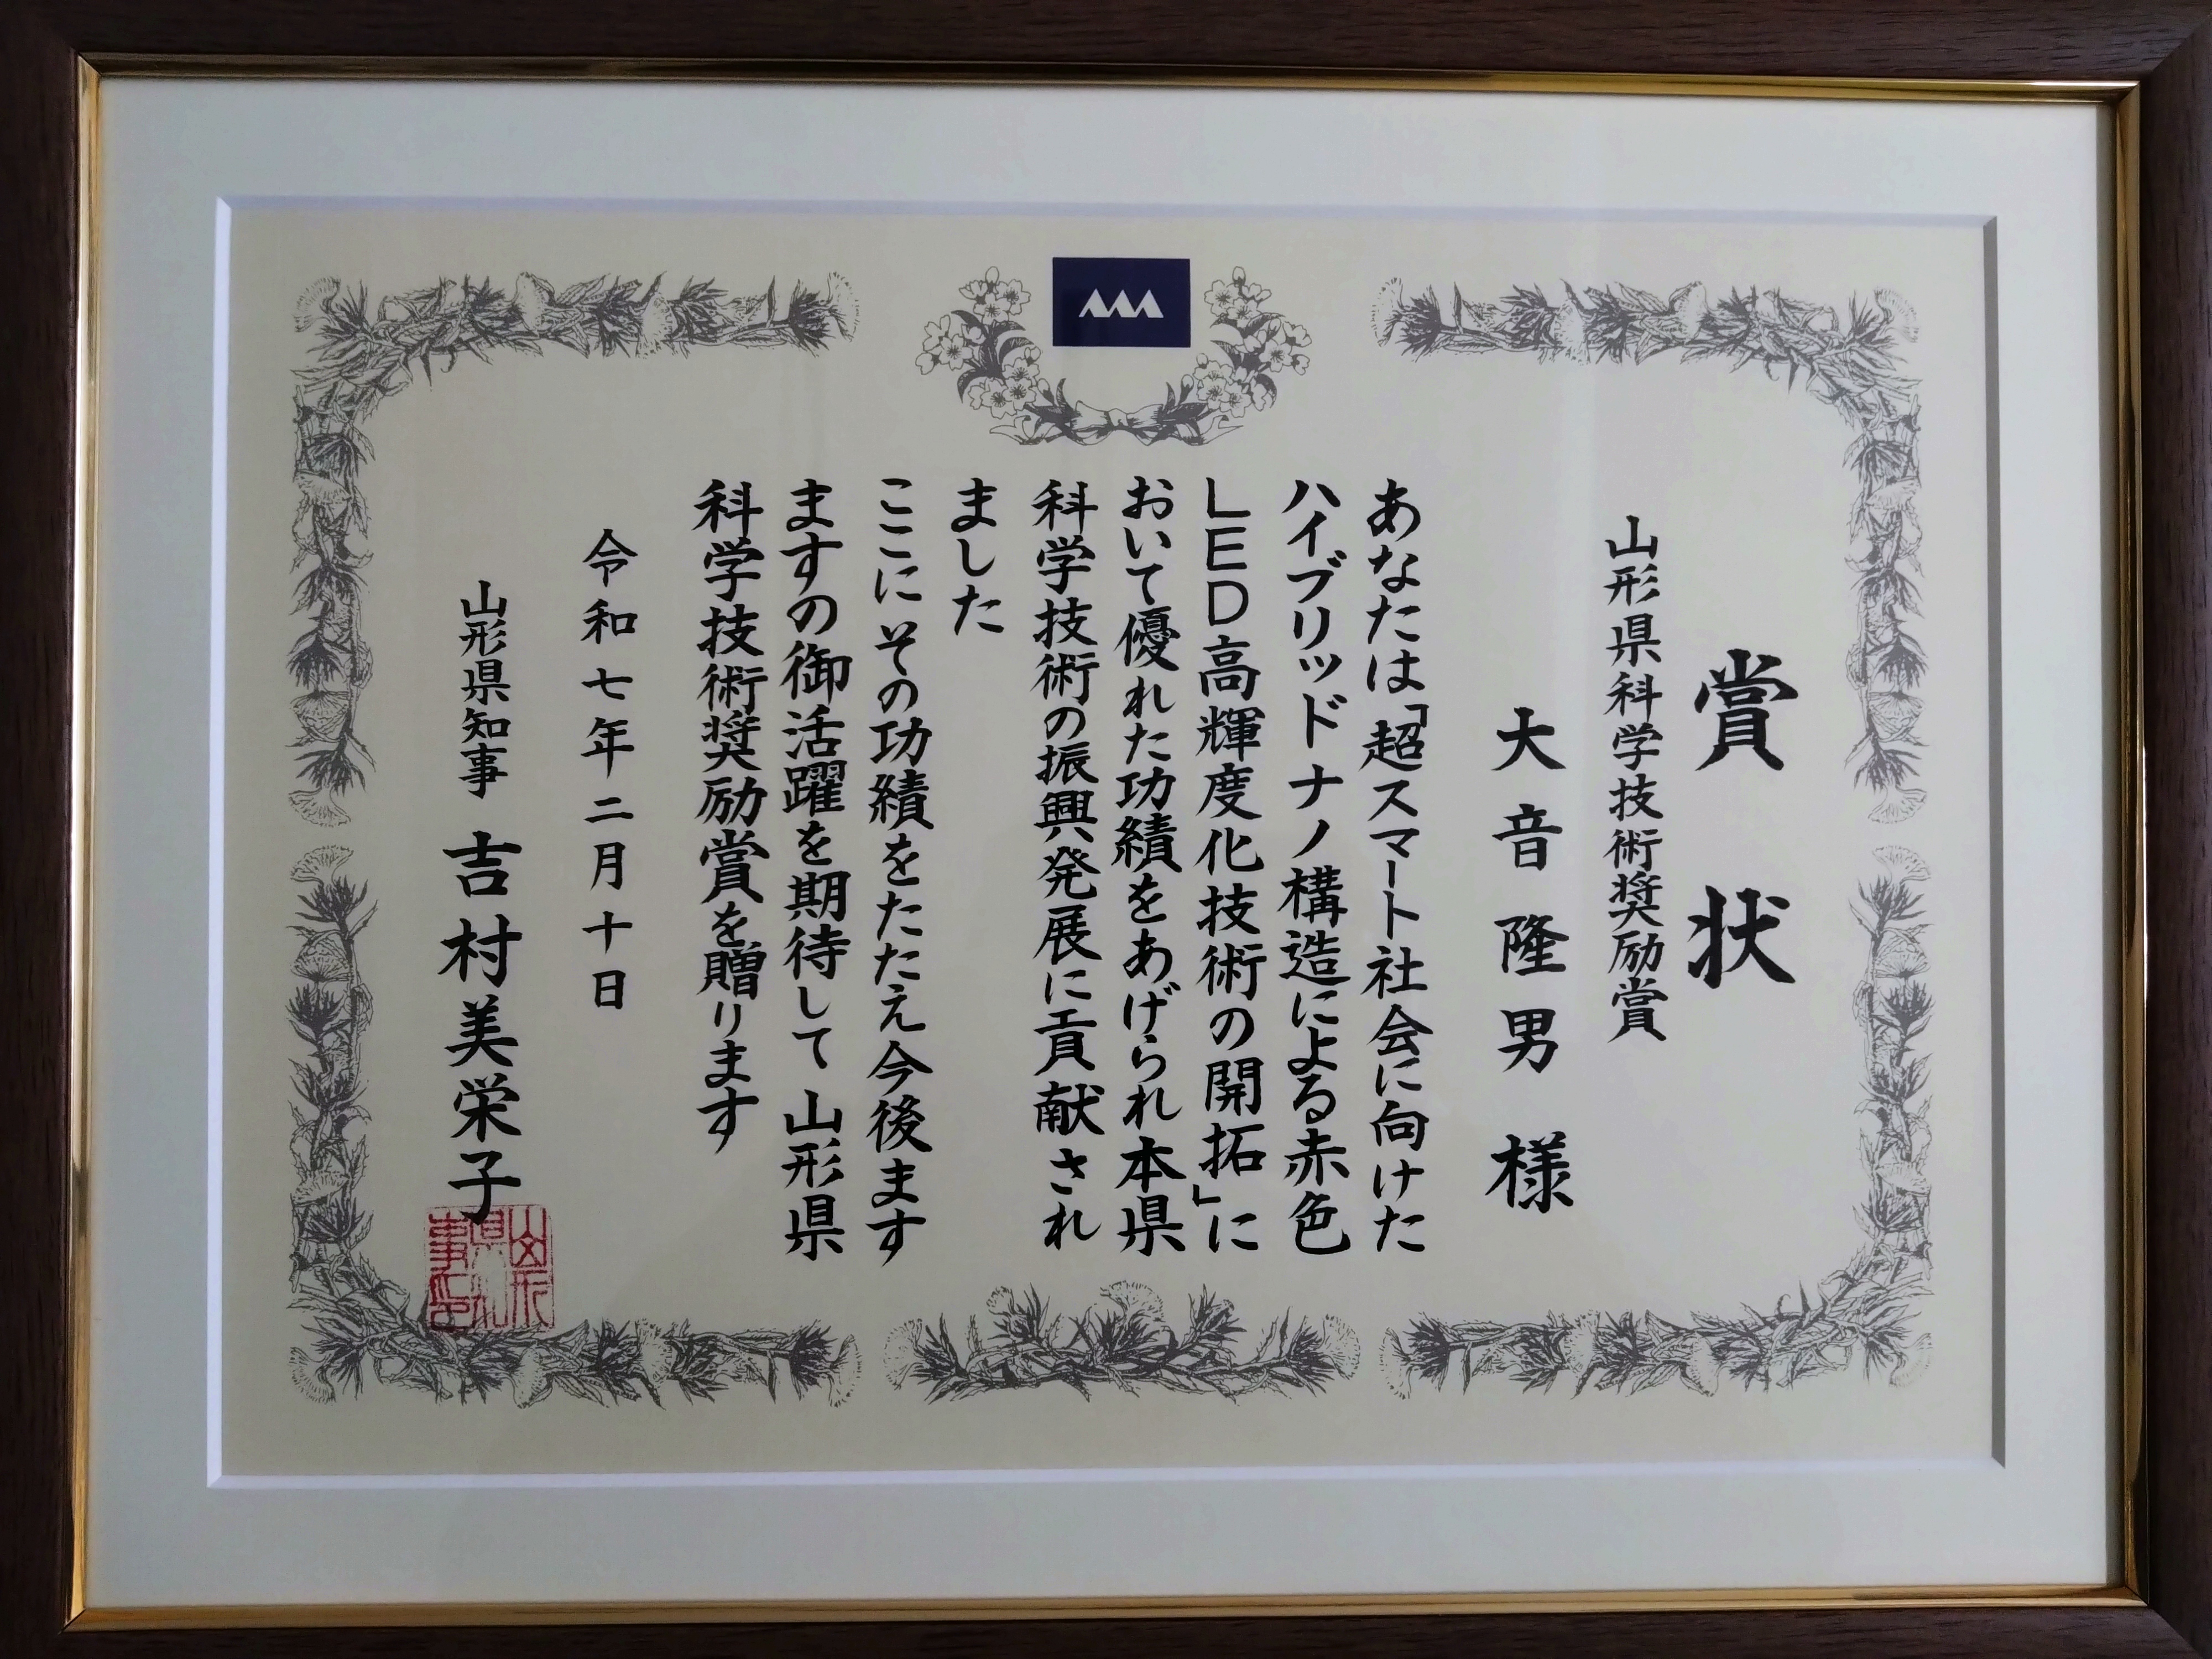 賞状
山形県科学技術奨励賞
大音隆男様
あなたは「超スマート社会に向けた
ハイブリッドナノ構造による赤色
LED高輝度化技術の開拓」に
おいて優れた功績をあげられ本県
科学技術の振興発展に貢献され
ました
ここにその功績をたたえ今後ます
ますの御活躍を期待して山形県
科学技術奨励賞を贈ります
令和七年二月十日
山形県知事 吉村美栄子
山形
県知
事印